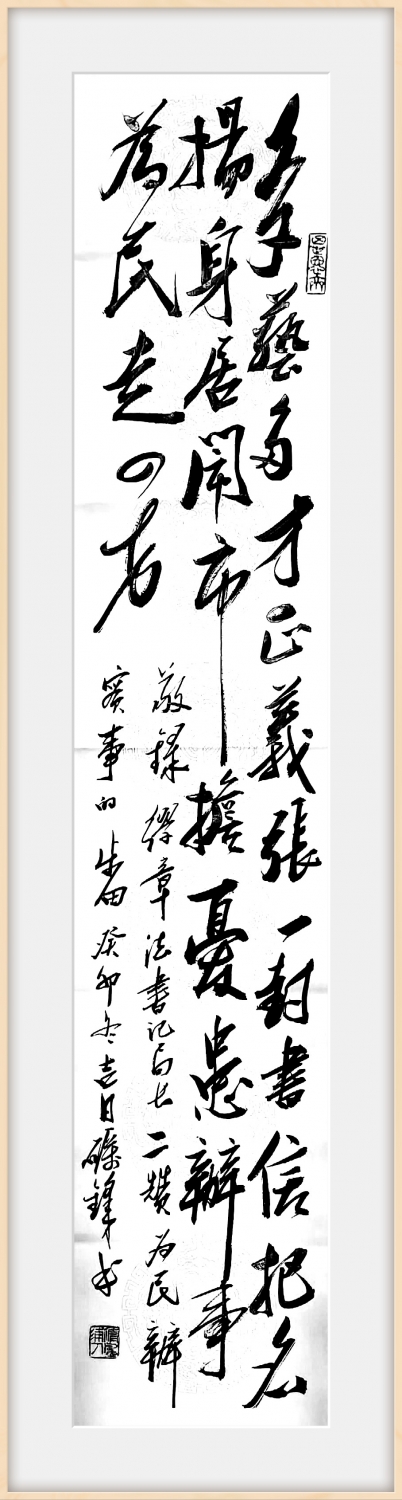 藝多才正義張一封書信把名
揚身居鬧市擔憂患辦事
為民走四方
敬錄章法書記局長二贊為民辦
實事的癸卯冬吉日鋒书